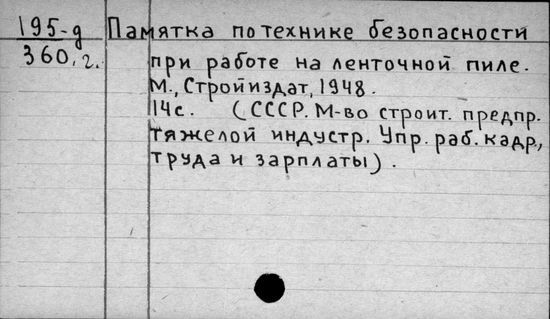 195-д Памятка по технике безопасности
360, г. при работе на ленточной пиле.
М., Стройиздат, 1948.
14с. (СССР. М-во строит. предпр.
тяжелой индустр. Упр. раб. кадр.,
труда и зарплаты).